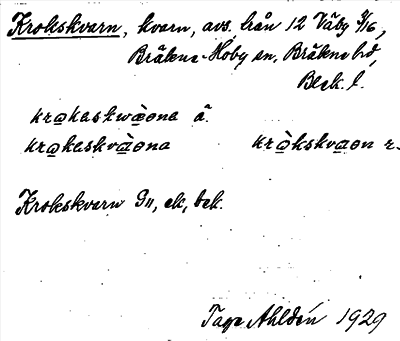 Krokskvarn, kvarn, avs. från 12 Väby 9/16,
Bräkne-Hoby sn, Bräkne hd,
Blek. l.
krokaskwæəna å.
krokaskvàəna kròkskvaən r.
Krokskvarn G11, ek, bek.
Tage Ahldén 1929